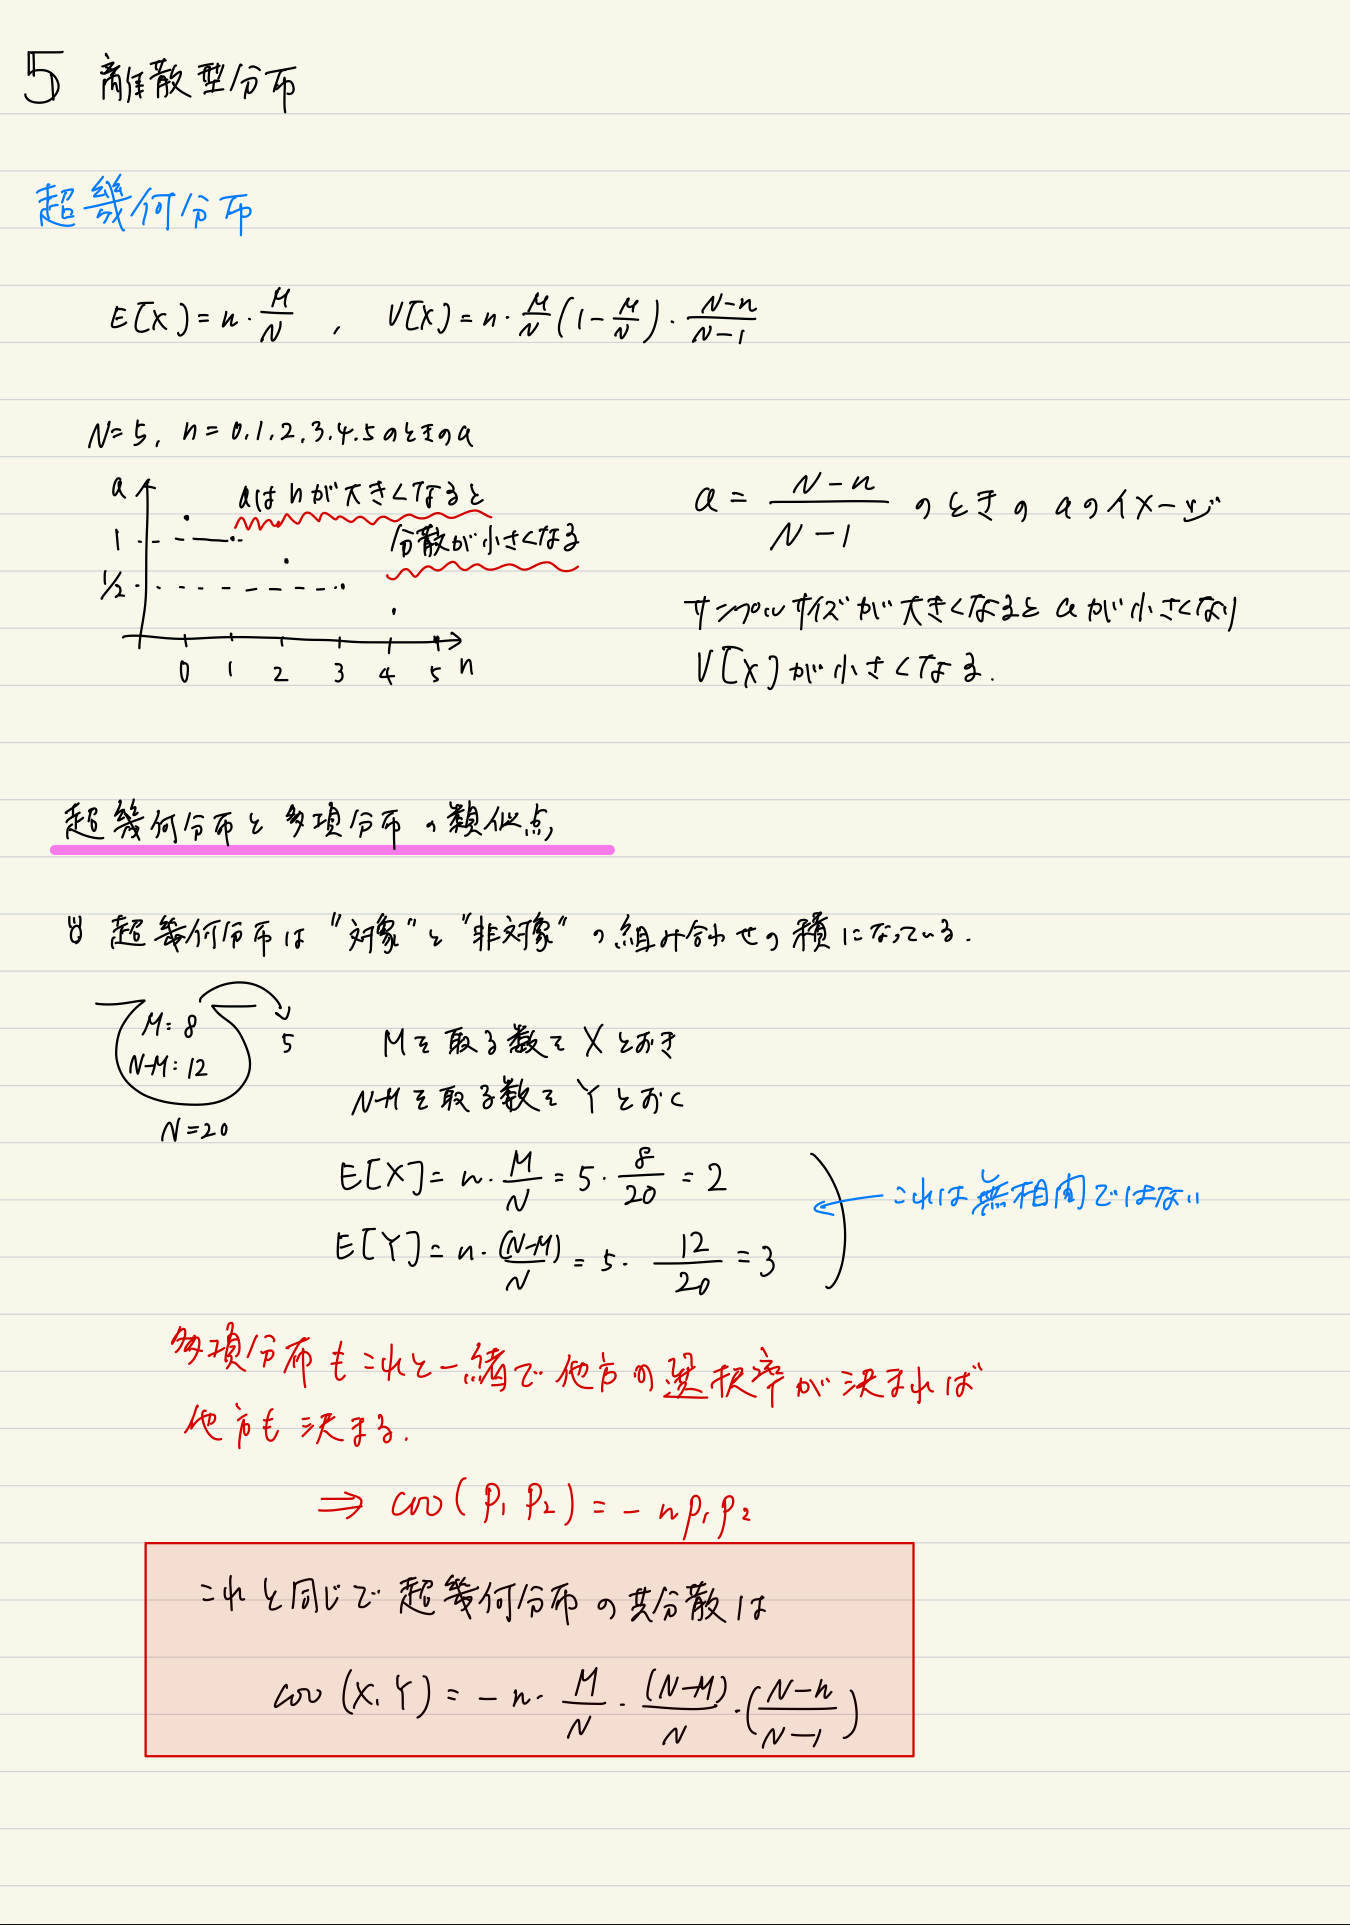 5 離散型分布
超幾何分布
E[X] = n・M/N , V[X] = n・M/N(1-M/N)・N-n/N-1
N=5, n=0.1.2.3.4.5のときのa
a
aはnが大きくなると
分散が小さくなる
1
1/2
0 1 2 3 4 5 n
a = N-n/N-1 のときの aのイメージ
サンプルサイズが大きくなるとaが小さくなり
V[X]が小さくなる.
超幾何分布と多項分布の類似点
超幾何分布は "対象"と"非対象"の組み合わせの積になっている.
M: 8
N-M: 12
5
N=20
Mを取る数を X とおき
N-Mを取る数を Y とおく
E[X] = n・M/N = 5・8/20 = 2
E[Y] = n・(N-M)/N = 5・12/20 = 3
これは無相関ではない
多項分布もこれと一緒で他方の選択率が決まれば
他方も決まる.
⇒ cov(P₁ P₂) = -nP₁P₂
これと同じで超幾何分布の共分散は
cov(X,Y) = -n・M/N・(N-M)/N・(N-n/N-1)